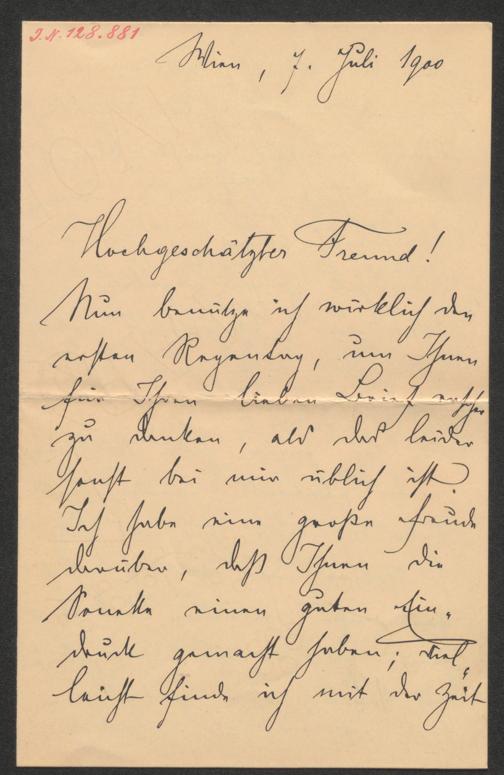 J.N. 128.881
Wien, 7. Juli 1900
Hochgeschätzter Freund!
Nun benutze ich wirklich den
ersten Regentag, um Ihnen
für Ihren lieben Brief rascher
zu danken, als das leider
sonst bei mir üblich ist.
Ich habe eine große Freude
darüber, daß Ihnen die
Sonette einen guten Ein-
druck gemacht haben; viel-
leicht finde ich mit der Zeit